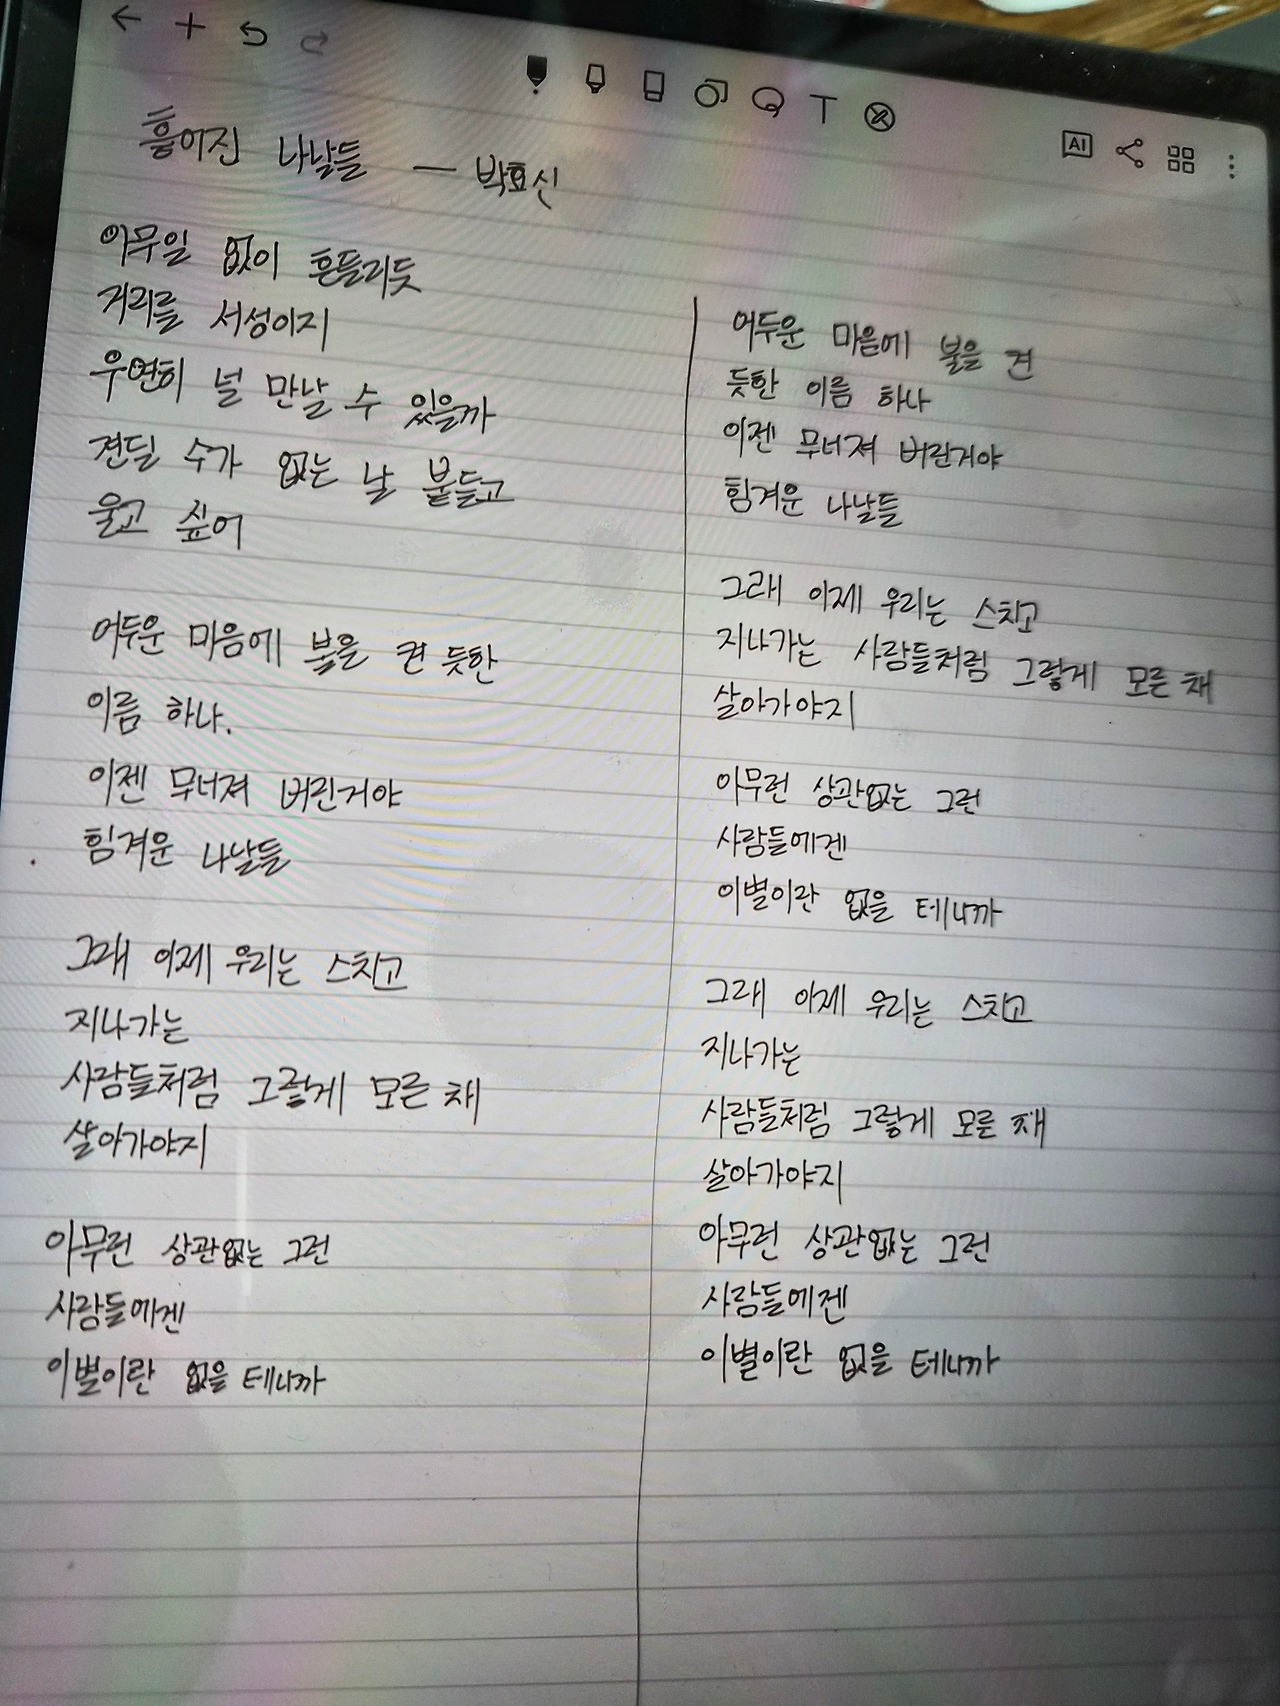 T
AI
흩어진 나날들 — 박효신
아무일 없이 흔들리듯
거리를 서성이지
우연히 널 만날 수 있을까
견딜 수가 없는 날 붙들고
울고 싶어
어두운 마음에 불을 켠 듯한
이름 하나.
이젠 무너져 버린거야
힘겨운 나날들
그래 이제 우리는 스치고
지나가는
사람들처럼 그렇게 모른 채
살아가야지
아무런 상관없는 그런
사람들에겐
이별이란 없을 테니까
어두운 마음에 불을 켠
듯한 이름 하나
이젠 무너져 버린거야
힘겨운 나날들
그래 이제 우리는 스치고
지나가는 사람들처럼 그렇게 모른 채
살아가야지
아무런 상관없는 그런
사람들에겐
이별이란 없을 테니까
그래 이제 우리는 스치고
지나가는
사람들처럼 그렇게 모른 채
살아가야지
아무런 상관없는 그런
사람들에겐
이별이란 없을 테니까